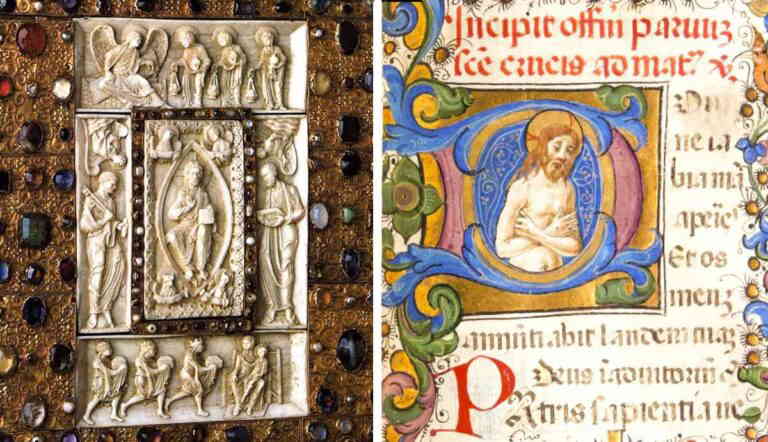 Incipit offin paruuz
sce crucis ad mat. x.
Domi
ne la
bia mea
aperies
Et os
meuz
annuntiabit laudem tuaz
Deus i adiutoriu
Patris sapientia ue